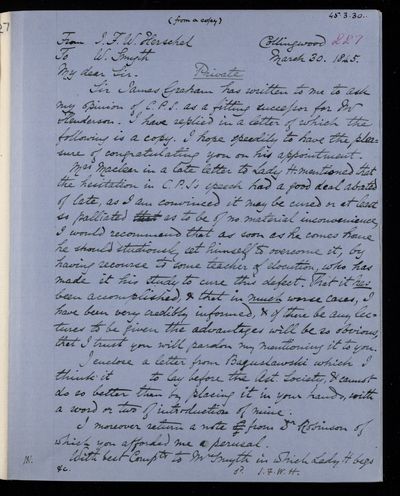 (from a copy)
45.3.30.
227
From J. F. W. Herschel Collingwood
To W. Smyth March 30. 1845.
My dear Sir. Private
Sir James Graham has written to me to ask
my opinion of C.P.S. as a fitting successor for Mr
Henderson. I have replied in a letter of which the
following is a copy. I hope speedily to have the plea-
sure of congratulating you on his appointment.
Mrs Maclear in a late letter to Lady H mentioned that
the hesitation in C.P.S's speech had a good deal abated
of late, as I am convinced it may be cured or at least
so palliated that as to be of no material inconvenience,
I would recommend that as soon as he comes home
he should studiously set himself to overcome it, by
having recourse to some teacher of elocution, who has
made it his study to cure this defect. That it has
been accomplished, & that in much worse cases, I
have been very credibly informed, & if there be any lec-
tures to be given the advantages will be so obvious
that I trust you will pardon my mentioning it to you.
I enclose a letter from Baguslawski which I
think it to lay before the Ast. Society, & cannot
do so better than by placing it in your hands, with
a word or two of introduction of mine.
I moreover return a note from Dr Robinson of
which you afforded me a perusal.
With best Compts to Mrs Smyth in which Lady H begs
&c. J. F. W. H.